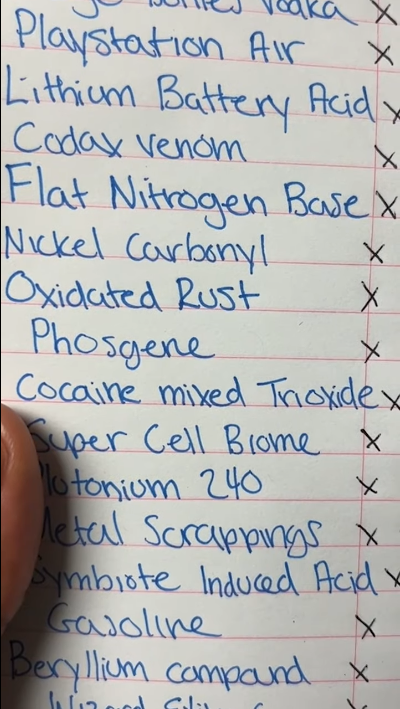 Vodka X
Playstation Air X
Lithium Battery Acid X
Codax venom X
Flat Nitrogen Base X
Nickel Carbonyl X
Oxidated Rust X
Phosgene X
Cocaine mixed Trioxide X
Super Cell Biome X
Plutonium 240 X
Metal Scrappings X
Symbiote Induced Acid X
Gasoline X
Beryllium compand X